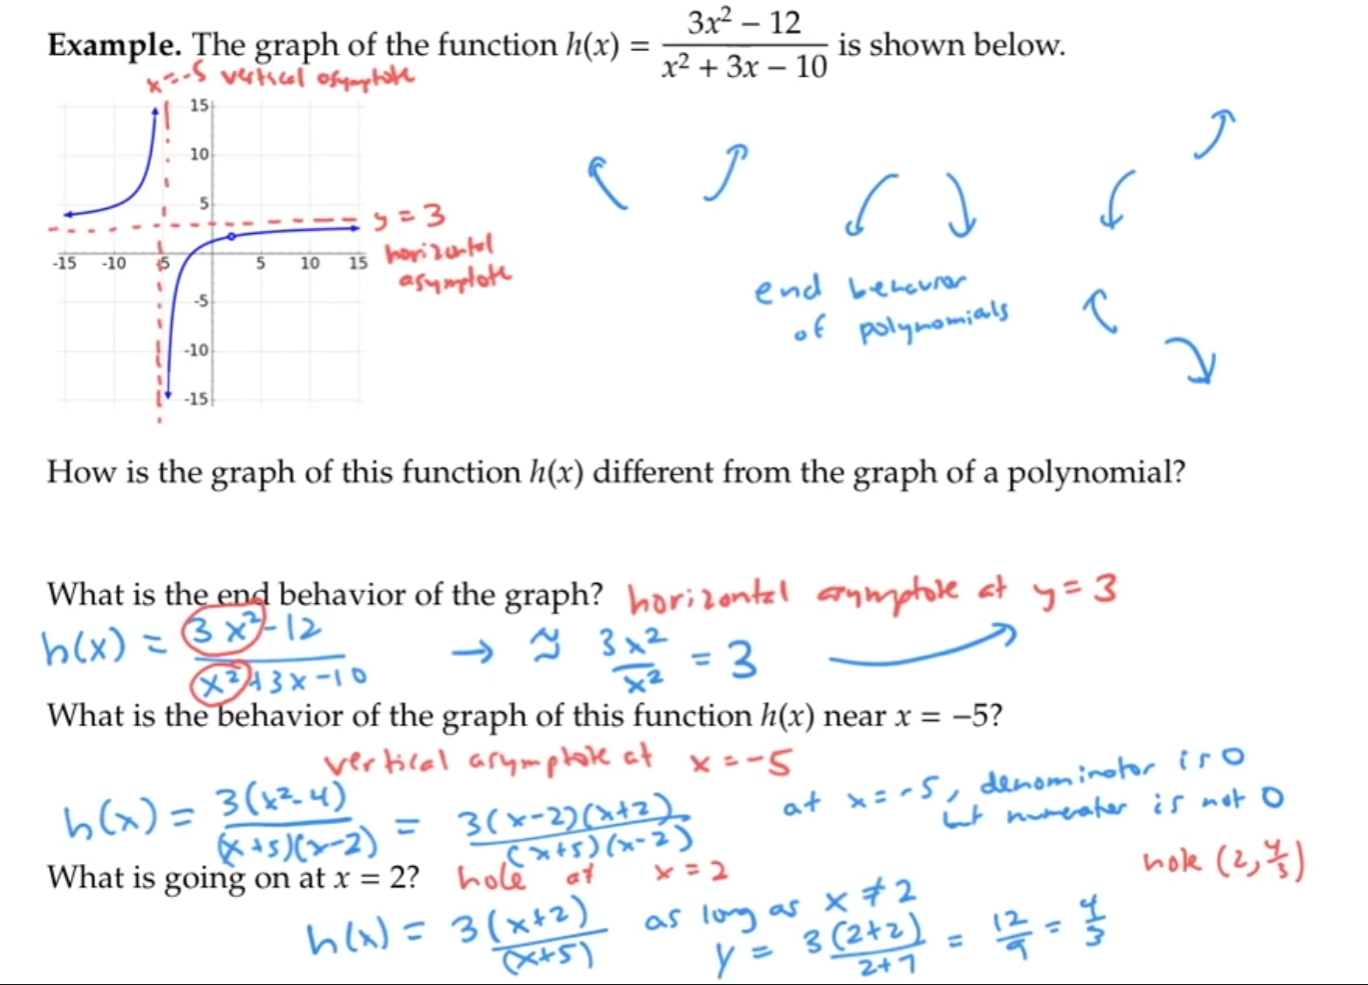 Example. The graph of the function h(x) = (3x² − 12)/(x² + 3x − 10) is shown below.
x=-5 vertical asymptote
15
10
5
y = 3
horizontal
asymptote
-15 -10 -5 5 10 15
-5
-10
-15
end behavior
of polynomials
How is the graph of this function h(x) different from the graph of a polynomial?
What is the end behavior of the graph? horizontal asymptote at y = 3
h(x) = (3x²-12)/(x²+3x-10) → ≅ 3x²/x² = 3
What is the behavior of the graph of this function h(x) near x = −5?
vertical asymptote at x = -5
h(x) = 3(x²-4)/((x+5)(x-2)) = 3(x-2)(x+2)/((x+5)(x-2))
at x = -5, denominator is 0
but numerator is not 0
What is going on at x = 2? hole at x = 2
hole (2, 4/3)
h(x) = 3(x+2)/(x+5) as long as x ≠ 2
y = 3(2+2)/(2+7) = 12/9 = 4/3